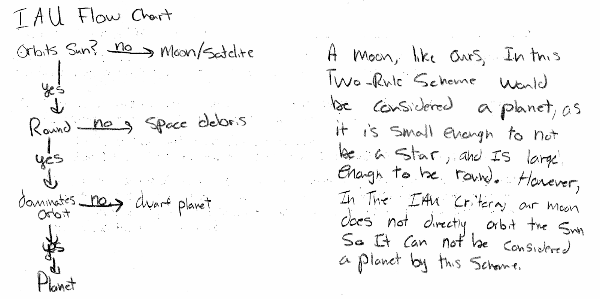 IAU Flow Chart
Orbits Sun? no Moon/Satelite
yes
Round no Space debris
yes
dominates no dwarf planet
orbit
yes
Planet
A moon, like ours, In this
Two-Rule Scheme would
be considered a planet, as
it is small enough to not
be a star, and Is large
enough to be round. However,
In The IAU Criteria, our moon
does not directly orbit the Sun
So It can not be considered
a planet by this Scheme.